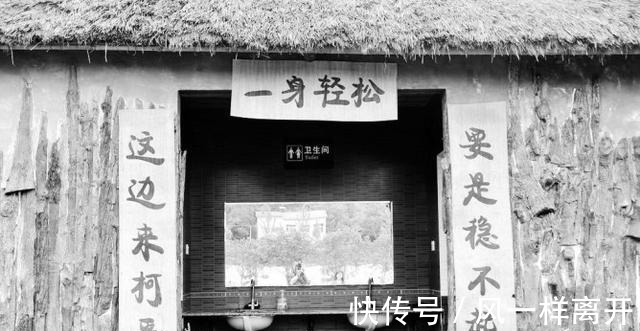 一身轻松
卫生间
Toilet
这边来柯
要是稳不
快传号/风一样离开